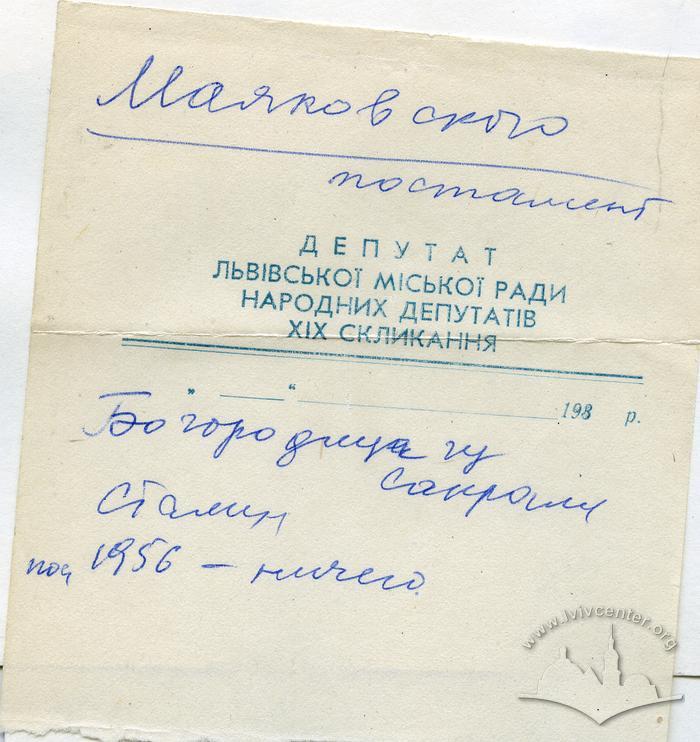 Маяковского
постамент
ДЕПУТАТ
ЛЬВІВСЬКОЇ МІСЬКОЇ РАДИ
НАРОДНИХ ДЕПУТАТІВ
XIX СКЛИКАННЯ
" " 198 р.
Богородица
Сталин
1956 – ничего
www.lvivcenter.org